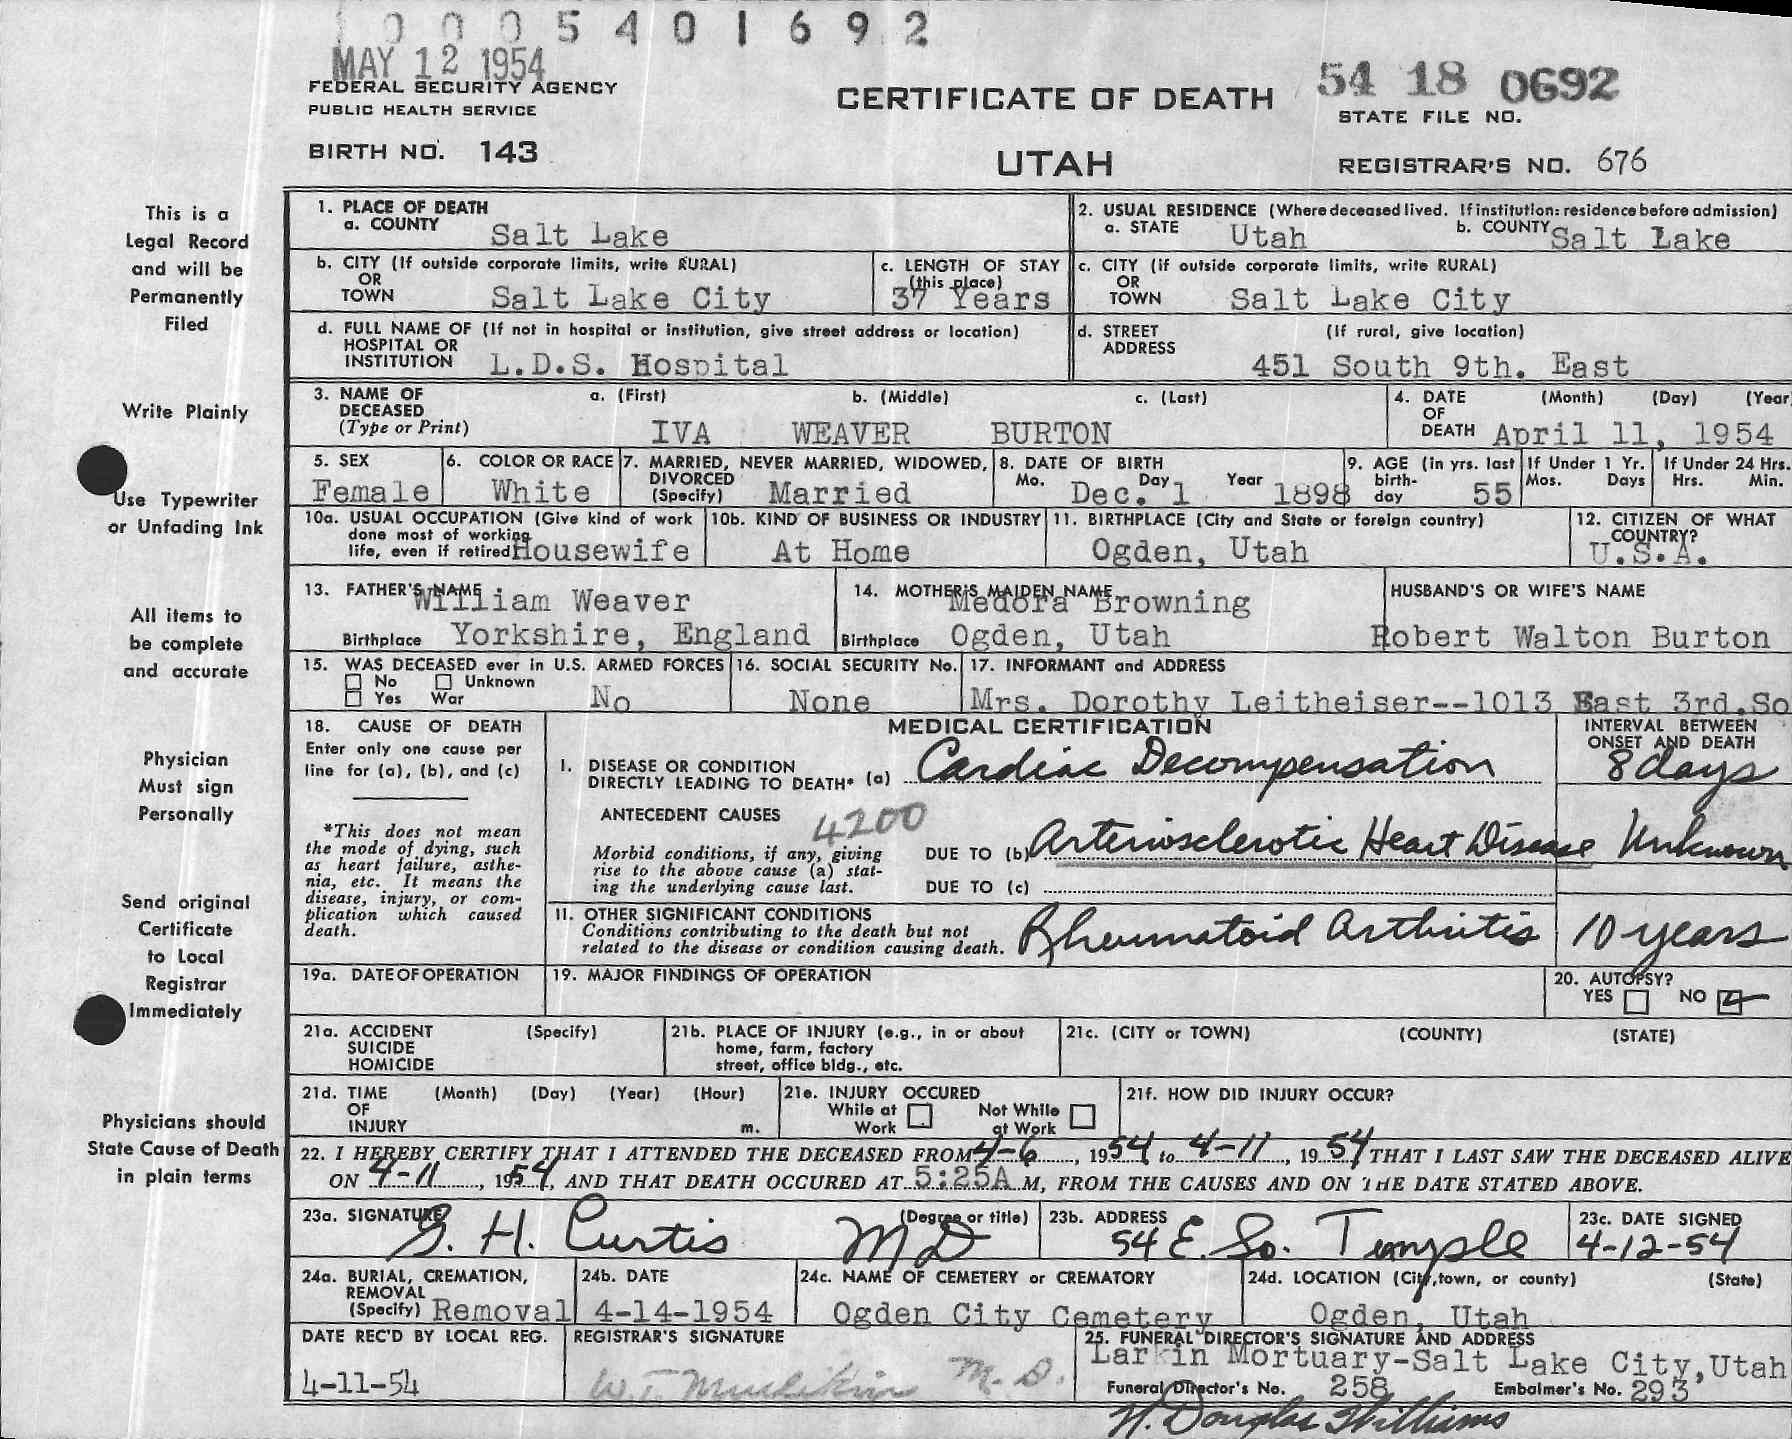 0005401692
MAY 12 1954
FEDERAL SECURITY AGENCY
PUBLIC HEALTH SERVICE
BIRTH NO. 143
CERTIFICATE OF DEATH
UTAH
54 18 0692
STATE FILE NO.
REGISTRAR'S NO. 676
This is a
Legal Record
and will be
Permanently
Filed
Write Plainly
Use Typewriter
or Unfading Ink
All items to
be complete
and accurate
Physician
Must sign
Personally
Send original
Certificate
to Local
Registrar
Immediately
Physicians should
State Cause of Death
in plain terms
1. PLACE OF DEATH
a. COUNTY Salt Lake
2. USUAL RESIDENCE (Where deceased lived. If institution: residence before admission)
a. STATE Utah b. COUNTY Salt Lake
b. CITY (If outside corporate limits, write RURAL)
OR
TOWN Salt Lake City
c. LENGTH OF STAY
(this place)
37 Years
c. CITY (if outside corporate limits, write RURAL)
OR
TOWN Salt Lake City
d. FULL NAME OF (If not in hospital or institution, give street address or location)
HOSPITAL OR
INSTITUTION L.D.S. Hospital
d. STREET (If rural, give location)
ADDRESS
451 South 9th. East
3. NAME OF a. (First) b. (Middle) c. (Last)
DECEASED
(Type or Print) IVA WEAVER BURTON
4. DATE (Month) (Day) (Year
OF
DEATH April 11, 1954
5. SEX
Female
6. COLOR OR RACE
White
7. MARRIED, NEVER MARRIED, WIDOWED,
DIVORCED
(Specify) Married
8. DATE OF BIRTH
Mo. Day Year
Dec. 1 1898
9. AGE (in yrs. last
birth-
day 55
If Under 1 Yr.
Mos. Days
If Under 24 Hrs.
Hrs. Min.
10a. USUAL OCCUPATION (Give kind of work
done most of working
life, even if retired Housewife
10b. KIND OF BUSINESS OR INDUSTRY
At Home
11. BIRTHPLACE (City and State or foreign country)
Ogden, Utah
12. CITIZEN OF WHAT
COUNTRY?
U.S.A.
13. FATHER'S NAME William Weaver
Birthplace Yorkshire, England
14. MOTHER'S MAIDEN NAME Medora Browning
Birthplace Ogden, Utah
HUSBAND'S OR WIFE'S NAME
Robert Walton Burton
15. WAS DECEASED ever in U.S. ARMED FORCES
No Unknown
Yes War No
16. SOCIAL SECURITY No.
None
17. INFORMANT and ADDRESS
Mrs. Dorothy Leitheiser--1013 East 3rd.So
18. CAUSE OF DEATH
Enter only one cause per
line for (a), (b), and (c)
*This does not mean
the mode of dying, such
as heart failure, asthe-
nia, etc. It means the
disease, injury, or com-
plication which caused
death.
MEDICAL CERTIFICATION
INTERVAL BETWEEN
ONSET AND DEATH
I. DISEASE OR CONDITION
DIRECTLY LEADING TO DEATH* (a) Cardiac Decompensation 8 days
ANTECEDENT CAUSES 4200
Morbid conditions, if any, giving
rise to the above cause (a) stat-
ing the underlying cause last.
DUE TO (b) Arteriosclerotic Heart Disease Unknown
DUE TO (c)
II. OTHER SIGNIFICANT CONDITIONS
Conditions contributing to the death but not
related to the disease or condition causing death. Rheumatoid Arthritis 10 years
19a. DATE OF OPERATION
19. MAJOR FINDINGS OF OPERATION
20. AUTOPSY?
YES NO
21a. ACCIDENT (Specify)
SUICIDE
HOMICIDE
21b. PLACE OF INJURY (e.g., in or about
home, farm, factory
street, office bldg., etc.
21c. (CITY or TOWN) (COUNTY) (STATE)
21d. TIME (Month) (Day) (Year) (Hour)
OF
INJURY m.
21e. INJURY OCCURED
While at Not While
Work at Work
21f. HOW DID INJURY OCCUR?
22. I HEREBY CERTIFY THAT I ATTENDED THE DECEASED FROM 4-6, 1954 to 4-11, 1954 THAT I LAST SAW THE DECEASED ALIVE
ON 4-11, 1954, AND THAT DEATH OCCURED AT 5:25A M, FROM THE CAUSES AND ON THE DATE STATED ABOVE.
23a. SIGNATURE (Degree or title)
G. H. Curtis MD
23b. ADDRESS
54 E. So. Temple
23c. DATE SIGNED
4-12-54
24a. BURIAL, CREMATION,
REMOVAL
(Specify) Removal
24b. DATE
4-14-1954
24c. NAME OF CEMETERY or CREMATORY
Ogden City Cemetery
24d. LOCATION (City, town, or county) (State)
Ogden, Utah
DATE REC'D BY LOCAL REG.
4-11-54
REGISTRAR'S SIGNATURE
W.T. M. D.
25. FUNERAL DIRECTOR'S SIGNATURE AND ADDRESS
Larkin Mortuary-Salt Lake City,Utah
Funeral Director's No. 258 Embalmer's No. 293
W. Douglas Williams